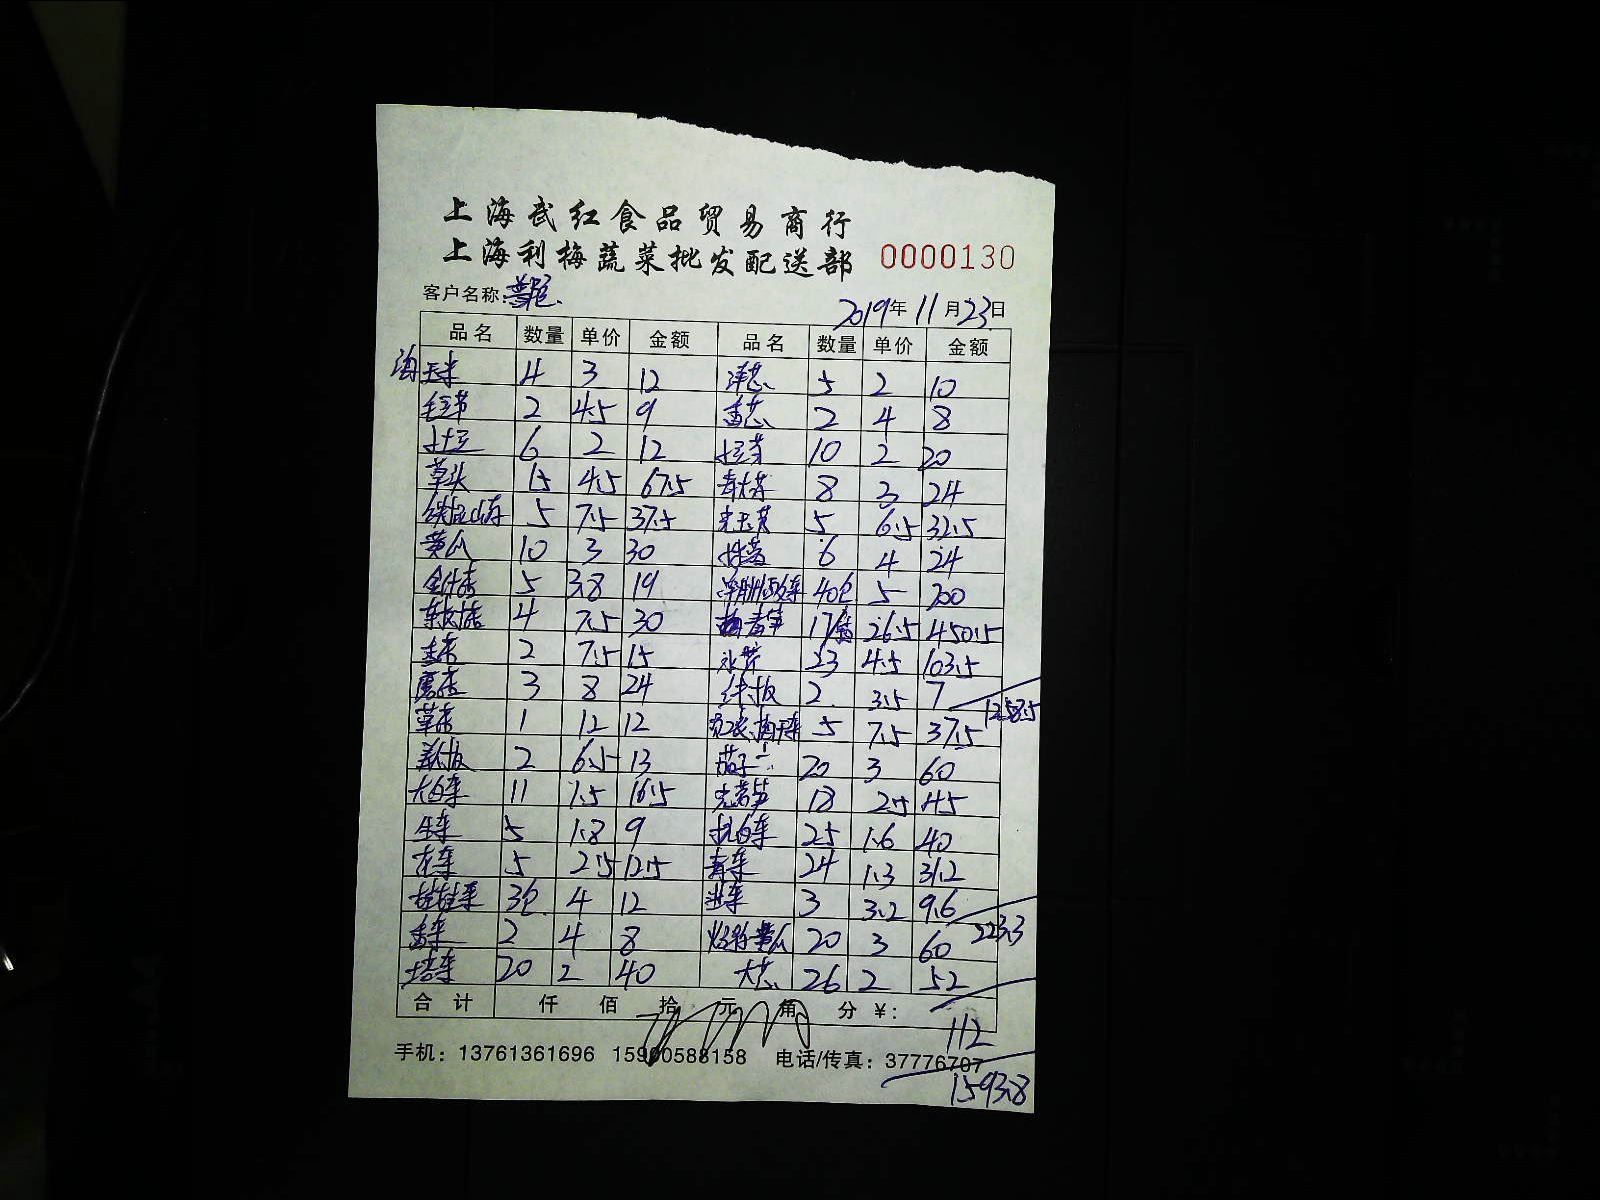 上海武红食品贸易商行
上海利梅蔬菜批发配送部 0000130
客户名称: 2019年11月23日
品名 数量 单价 金额 品名 数量 单价 金额
玉米 4 3 12 洋芯 5 2 10
毛豆节 2 4.5 9 香芯 2 4 8
土豆 6 2 12 土豆芽 10 2 20
草头 15 4.5 67.5 青大芹 8 3 24
铁棍山药 5 7.5 37.5 5 6.5 32.5
黄瓜 10 3 30 6 4 24
金针菇 5 3.8 19 40包 5 200
4 7.5 30 17 26.5 450.5
2 7.5 15 水芹 23 4.5 103.5
蘑菇 3 8 24 2 3.5 7
草菇 1 12 12 5 7.5 37.5
2 6.5 13 茄子 20 3 60
大白菜 11 1.5 16.5 18 2.5 45
生菜 5 1.8 9 杭白菜 25 1.6 40
5 2.5 12.5 青菜 24 1.3 31.2
娃娃菜 3包 4 12 3 3.2 9.6
香菜 2 4 8 黄瓜 20 3 60
塔菜 20 2 40 大芯 26 2 52
1258.5
223.3
合计 仟 佰 拾 元 角 分 ¥:
112
手机: 13761361696 15900588158 电话/传真: 37776707
1593.8